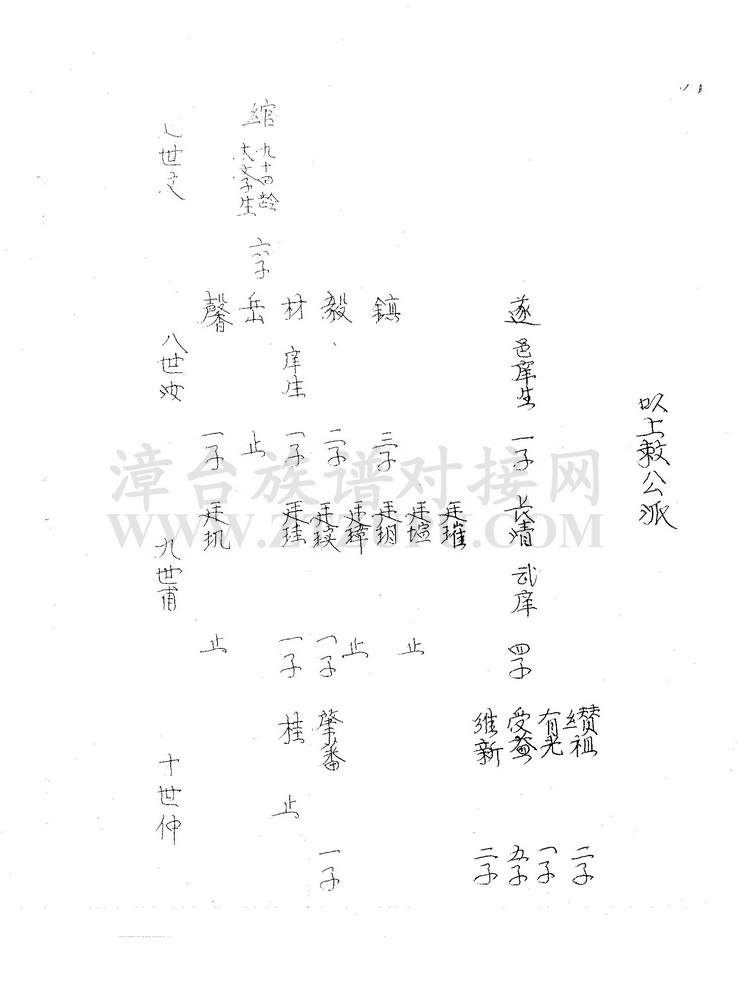 以上敕公派
遂 邑庠生 一子 長清 武庠 四子
纘祖 二子
有光 一子
受益 五子
維新 二子
鎮 三子
廷璀
廷瑄 止
廷玥
毅 二子
廷璋 止
廷玟 一子 肇番 一子
材 庠生 一子 廷珪 一子 桂 止
岳 止
馨 一子 廷玑 止
綰 九十四齡 大文学生 六子
七世文
八世汝
九世甫
十世仲
漳台族谱对接网